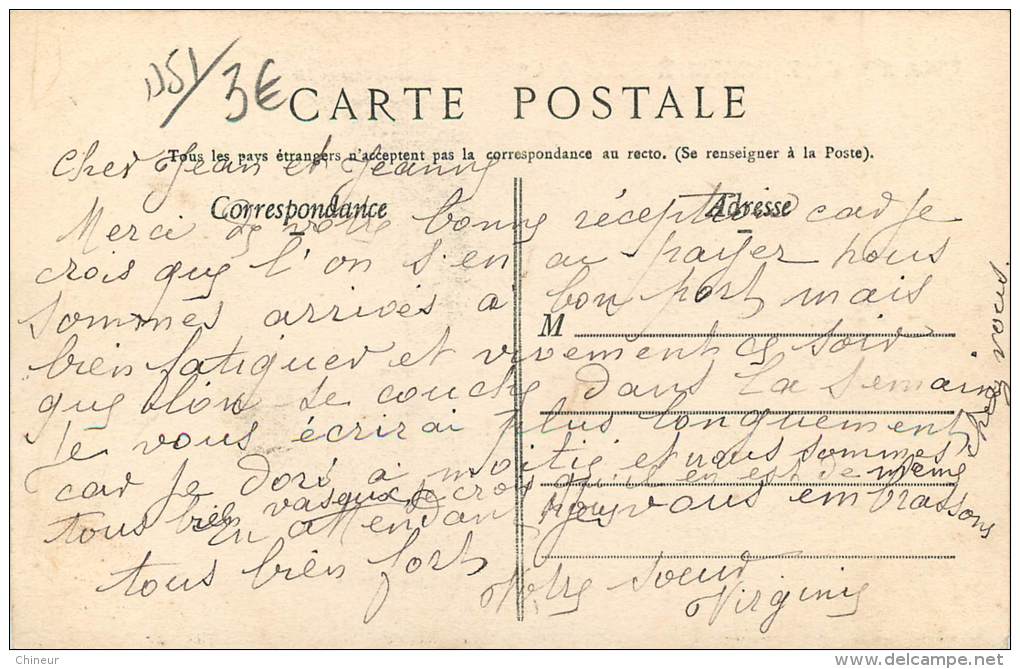 3€
CARTE POSTALE
Tous les pays étrangers n'acceptent pas la correspondance au recto. (Se renseigner à la Poste).
Correspondance
Adresse
M
Cher Jean et Jeanne
Merci de votre bonne réception car Je
crois que l'on s'en au payer nous
sommes arrivés a bon port mais
bien fatiguer et vivement ce soir
que l'on se couche dans La semaine
Je vous écrirai plus longuement
car Je dors a moitié et nous sommes
tous bien vaseux Je crois qu'il en est de même
pour vous
En attendant nous vous embrassons
tous bien fort
Votre soeur
Virginie
Chineur
www.delcampe.net